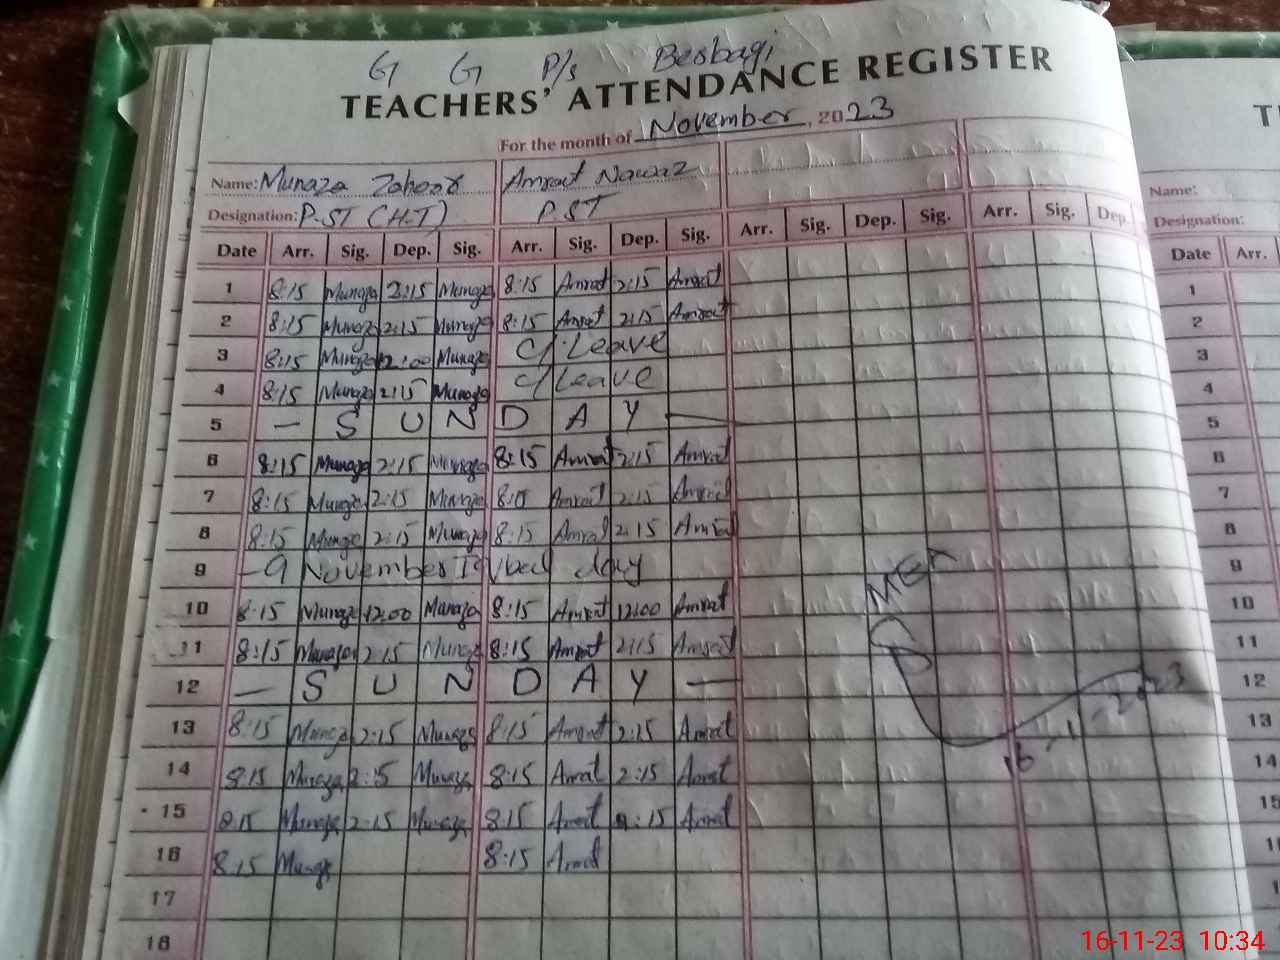 G G P/s Besbagi
TEACHERS' ATTENDANCE REGISTER
For the month of November, 2023
Name: Munaza Zahoor Amrat Nawaz
Designation: P.ST (H.T) P.ST
Date Arr. Sig. Dep. Sig. Arr. Sig. Dep. Sig. Arr. Sig. Dep. Sig. Arr. Sig. Dep.
1 8:15 Munaza 2:15 Munaza 8:15 Amrat 2:15 Amrat
2 8:15 Munaza 2:15 Munaza 8:15 Amrat 2:15 Amrat
3 8:15 Munaza 12:00 Munaza C/Leave
4 8:15 Munaza 2:15 Munaza C/Leave
5 — S U N D A Y —
6 8:15 Munaza 2:15 Munaza 8:15 Amrat 2:15 Amrat
7 8:15 Munaza 2:15 Munaza 8:15 Amrat 2:15 Amrat
8 8:15 Munaza 2:15 Munaza 8:15 Amrat 2:15 Amrat
9 – 9 November Iqbal day
10 8:15 Munaza 12:00 Munaza 8:15 Amrat 12:00 Amrat
11 8:15 Munaza 2:15 Munaza 8:15 Amrat 2:15 Amrat
12 — S U N D A Y —
13 8:15 Munaza 2:15 Munaza 8:15 Amrat 2:15 Amrat
14 8:15 Munaza 2:15 Munaza 8:15 Amrat 2:15 Amrat
15 8:15 Munaza 2:15 Munaza 8:15 Amrat 2:15 Amrat
16 8:15 Munaza 8:15 Amrat
17
18
MEA
16-11-2023
T
Name:
Designation:
Date Arr.
1
2
3
4
5
6
7
8
9
10
11
12
13
14
15
16-11-23 10:34